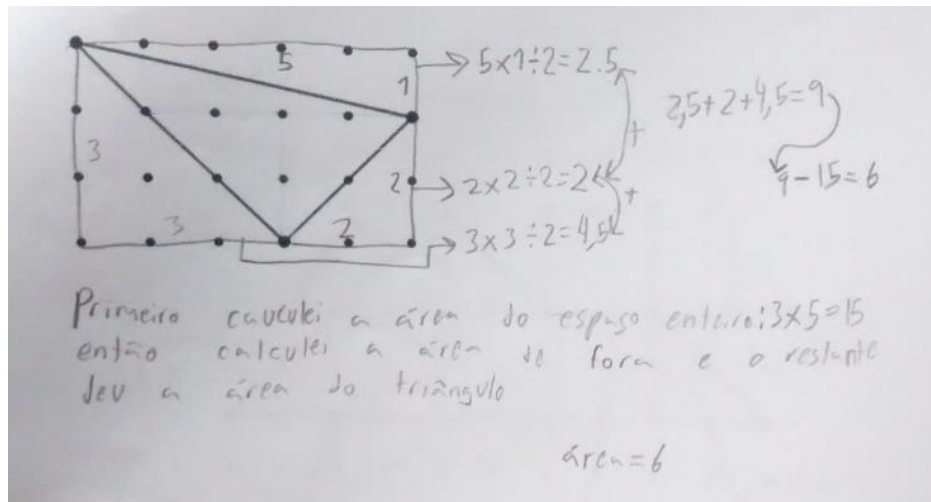 5
1
3
2
3
2
5x1÷2=2.5
2x2÷2=2
3x3÷2=4,5
+
+
2,5+2+4,5=9
9-15=6
Primeiro cauculei a área do espaço enteiro:3x5=15
então calculei a área de fora e o restante
deu a área do triângulo
área=6